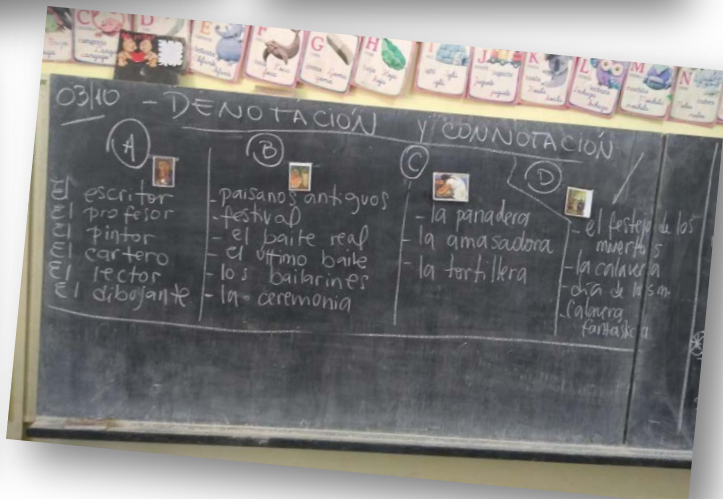 C D E F G H I J K L M N
03/10 - DENOTACIÓN Y CONNOTACIÓN
A
El escritor
El profesor
El pintor
El cartero
El lector
El dibujante
B
- paisanos antiguos
- festival
- el baile real
- el último baile
- los bailarines
- la ceremonia
C
- la panadera
- la amasadora
- la tortillera
D
- el festejo de los
muertos
- la calavera
- día de los m.
- Calavera
fantástica